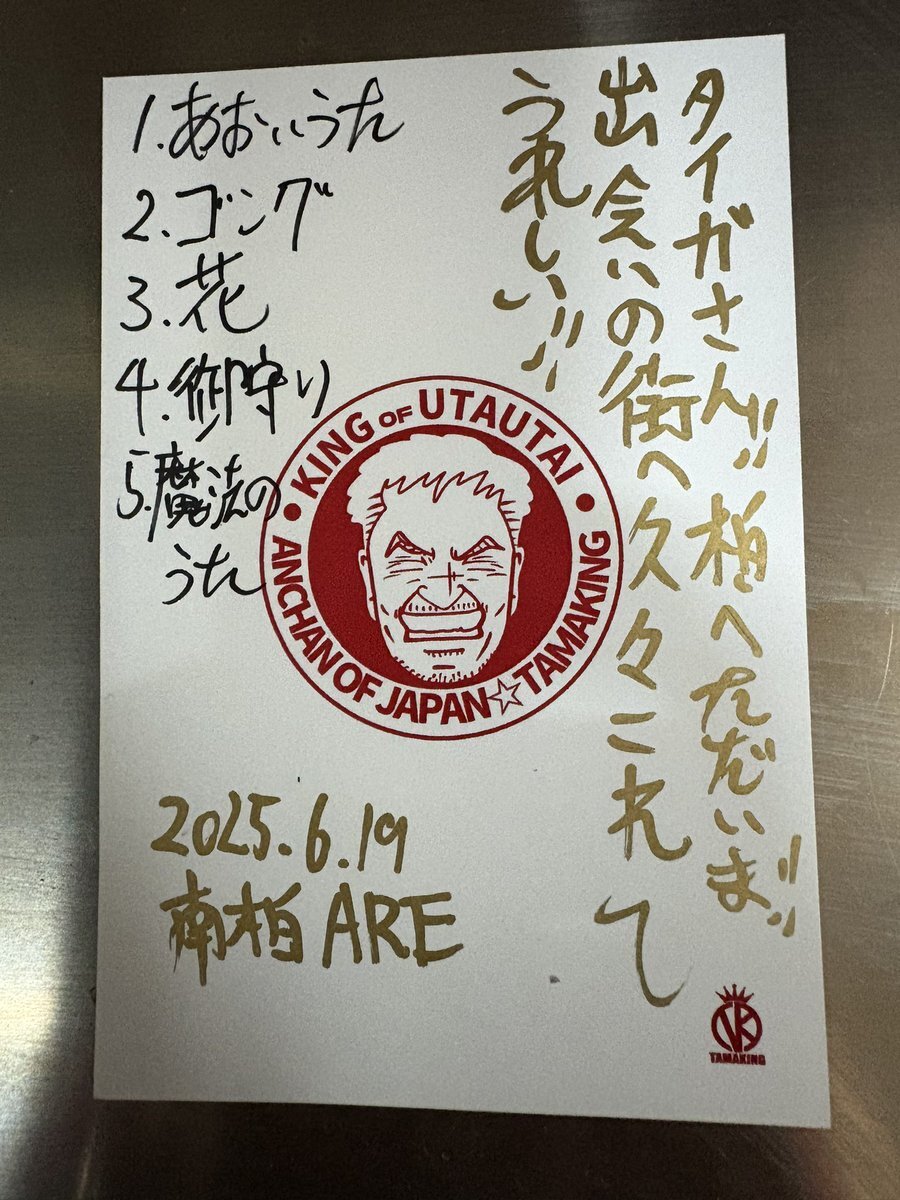 タイガさん!! 柏へただいま!!
出会いの街へ久々これて
うれしい!!
1.あおいうた
2.ゴング
3.花
4.御守り
5.魔法の
うた
• KING OF UTAUTAI •
ANCHAN OF JAPAN☆TAMAKING
2025.6.19
南柏 ARE
TK
TAMAKING